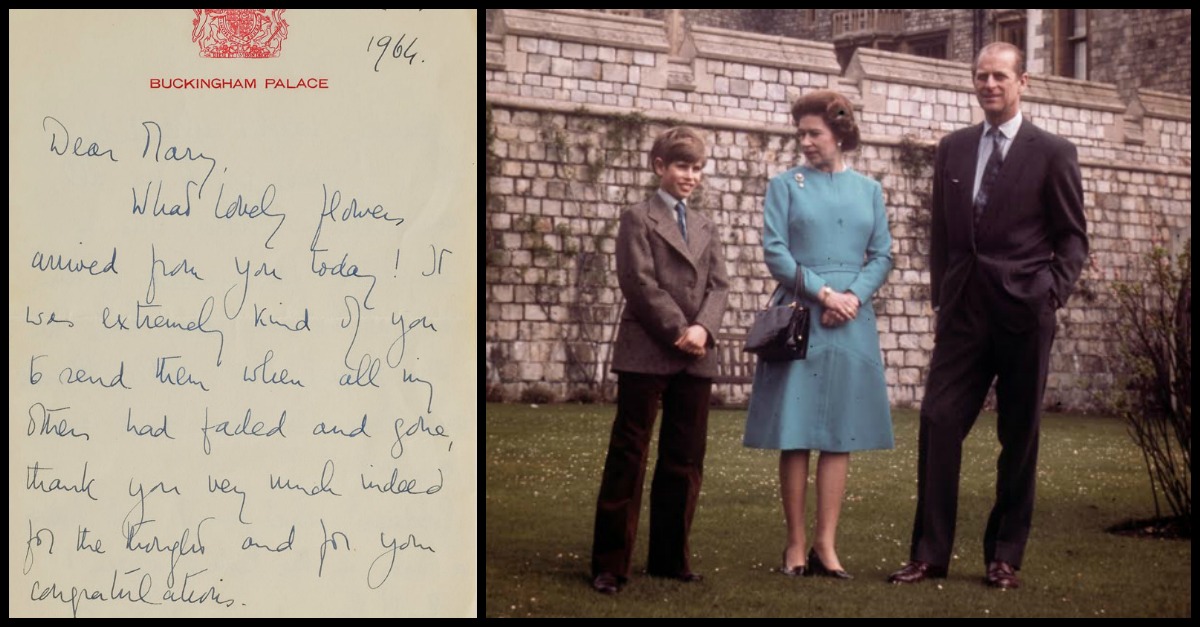 1964.
BUCKINGHAM PALACE
Dear Mary,
What lovely flowers
arrived from you today! It
was extremely kind of you
to send them when all my
others had faded and gone,
thank you very much indeed
for the thought and for your
congratulations.